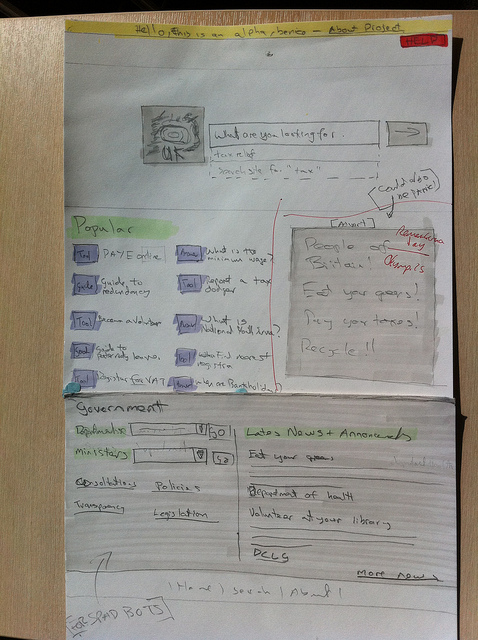 Hello, this is an alpha service - About Project
UK
What are you looking for.
tax relief
Search site for "tax"
Could also be
Popular
Tool PAYE online
Answer What is the minimum wage?
Guide Guide to redundancy
Tool Report a tax dodger
Tool Become a volunteer
Answer What is National
Guide to paternity leave
Tool Find nearest
Tool Register for VAT
Answer When are Bankholidays
[Advert]
People of Britain!
Remembrance Day
Olympics
Eat your peas!
Pay your taxes!
Recycle!!
Government
Departments GO!
Ministers GO
Consultations Policies
Transparency Legislation
Lates News + Announcements
Eat your peas
Department of health
Volunteer at your library
DCLG
more news
| Home | search | About |
FOR SPAD BOTS